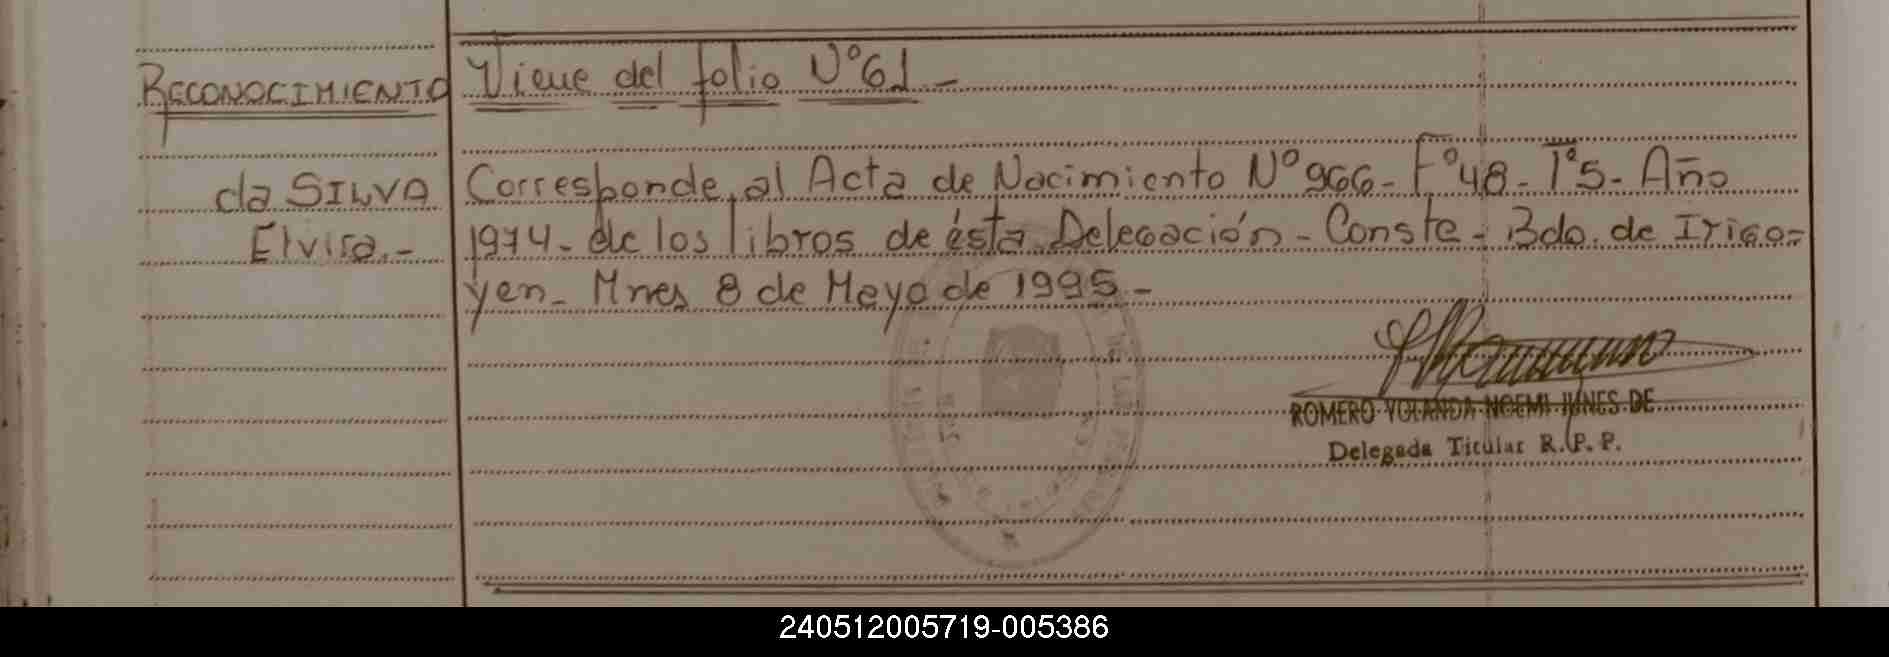 RECONOCIMIENTO
Viene del folio Nº61.-
da SILVA
Elvira.-
Corresponde al Acta de Nacimiento Nº966- Fº48- Tº5- Año
1974- de los libros de ésta Delegación- Conste- Bdo. de Irigo-
yen- Mnes 8 de Mayo de 1995-
ROMERO YOLANDA NOEMI
DE
Delegada Titular R.P.P.
240512005719-005386